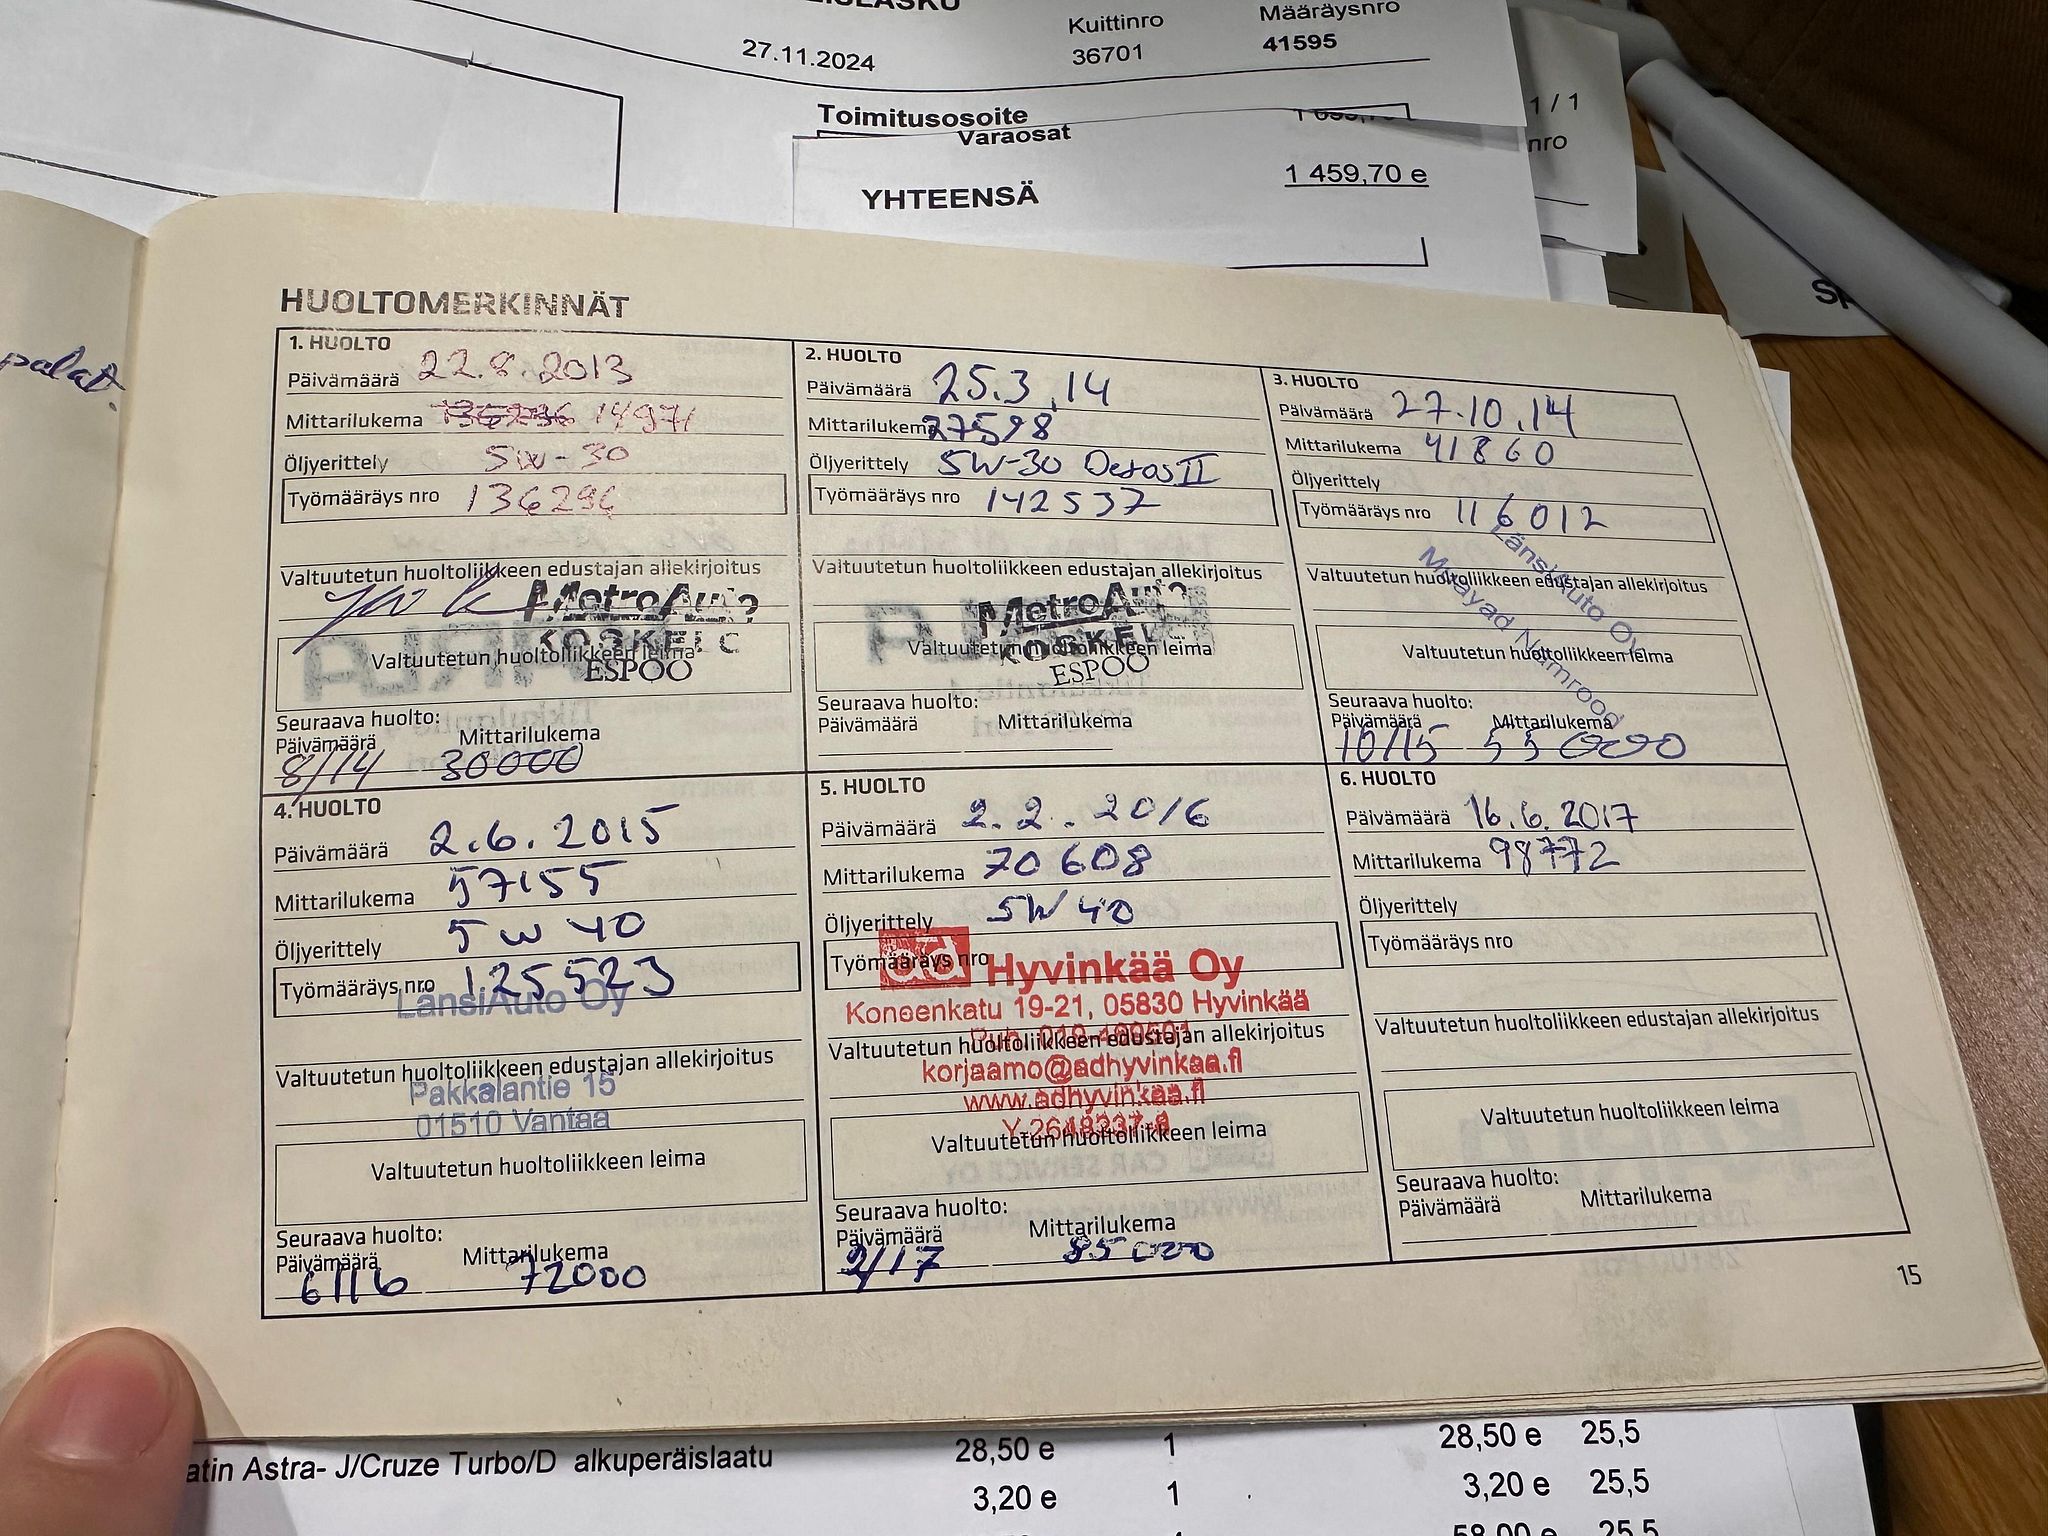 27.11.2024
Kuittinro
36701
Määräysnro
41595
Toimitusosoite
Varaosat
YHTEENSÄ
1 459,70 e
1 / 1
nro
palat.
HUOLTOMERKINNÄT
1. HUOLTO
Päivämäärä 22.8.2013
Mittarilukema 14971
Öljyerittely 5W-30
Työmääräys nro 136296
Valtuutetun huoltoliikkeen edustajan allekirjoitus
MetroAuto
KOSKELO
ESPOO
Valtuutetun huoltoliikkeen leima
Seuraava huolto:
Päivämäärä Mittarilukema
8/14 30000
2. HUOLTO
Päivämäärä 25.3.14
Mittarilukema 27598
Öljyerittely 5W-30 Dexos II
Työmääräys nro 142537
Valtuutetun huoltoliikkeen edustajan allekirjoitus
MetroAuto
KOSKEL
ESPOO
Valtuutetun huoltoliikkeen leima
Seuraava huolto:
Päivämäärä Mittarilukema
3. HUOLTO
Päivämäärä 27.10.14
Mittarilukema 41860
Öljyerittely
Työmääräys nro 116012
LänsiAuto Oy
Nimrood
Valtuutetun huoltoliikkeen edustajan allekirjoitus
Valtuutetun huoltoliikkeen leima
Seuraava huolto:
Päivämäärä Mittarilukema
10/15 55000
4. HUOLTO
Päivämäärä 2.6.2015
Mittarilukema 57155
Öljyerittely 5W40
Työmääräys nro 125523
LänsiAuto Oy
Valtuutetun huoltoliikkeen edustajan allekirjoitus
Pakkalantie 15
01510 Vantaa
Valtuutetun huoltoliikkeen leima
Seuraava huolto:
Päivämäärä Mittarilukema
6/16 72000
5. HUOLTO
Päivämäärä 2.2.2016
Mittarilukema 70608
Öljyerittely 5W40
Työmääräys nro
ad Hyvinkää Oy
Koneenkatu 19-21, 05830 Hyvinkää
Puh.
Valtuutetun huoltoliikkeen edustajan allekirjoitus
korjaamo@adhyvinkaa.fl
www.adhyvinkaa.fl
Valtuutetun huoltoliikkeen leima
Seuraava huolto:
Päivämäärä Mittarilukema
2/17 85000
6. HUOLTO
Päivämäärä 16.6.2017
Mittarilukema 98772
Öljyerittely
Työmääräys nro
Valtuutetun huoltoliikkeen edustajan allekirjoitus
Valtuutetun huoltoliikkeen leima
Seuraava huolto:
Päivämäärä Mittarilukema
15
atin Astra- J/Cruze Turbo/D alkuperäislaatu 28,50 e 1 28,50 e 25,5
3,20 e 1 3,20 e 25,5
58,00 e 25,5